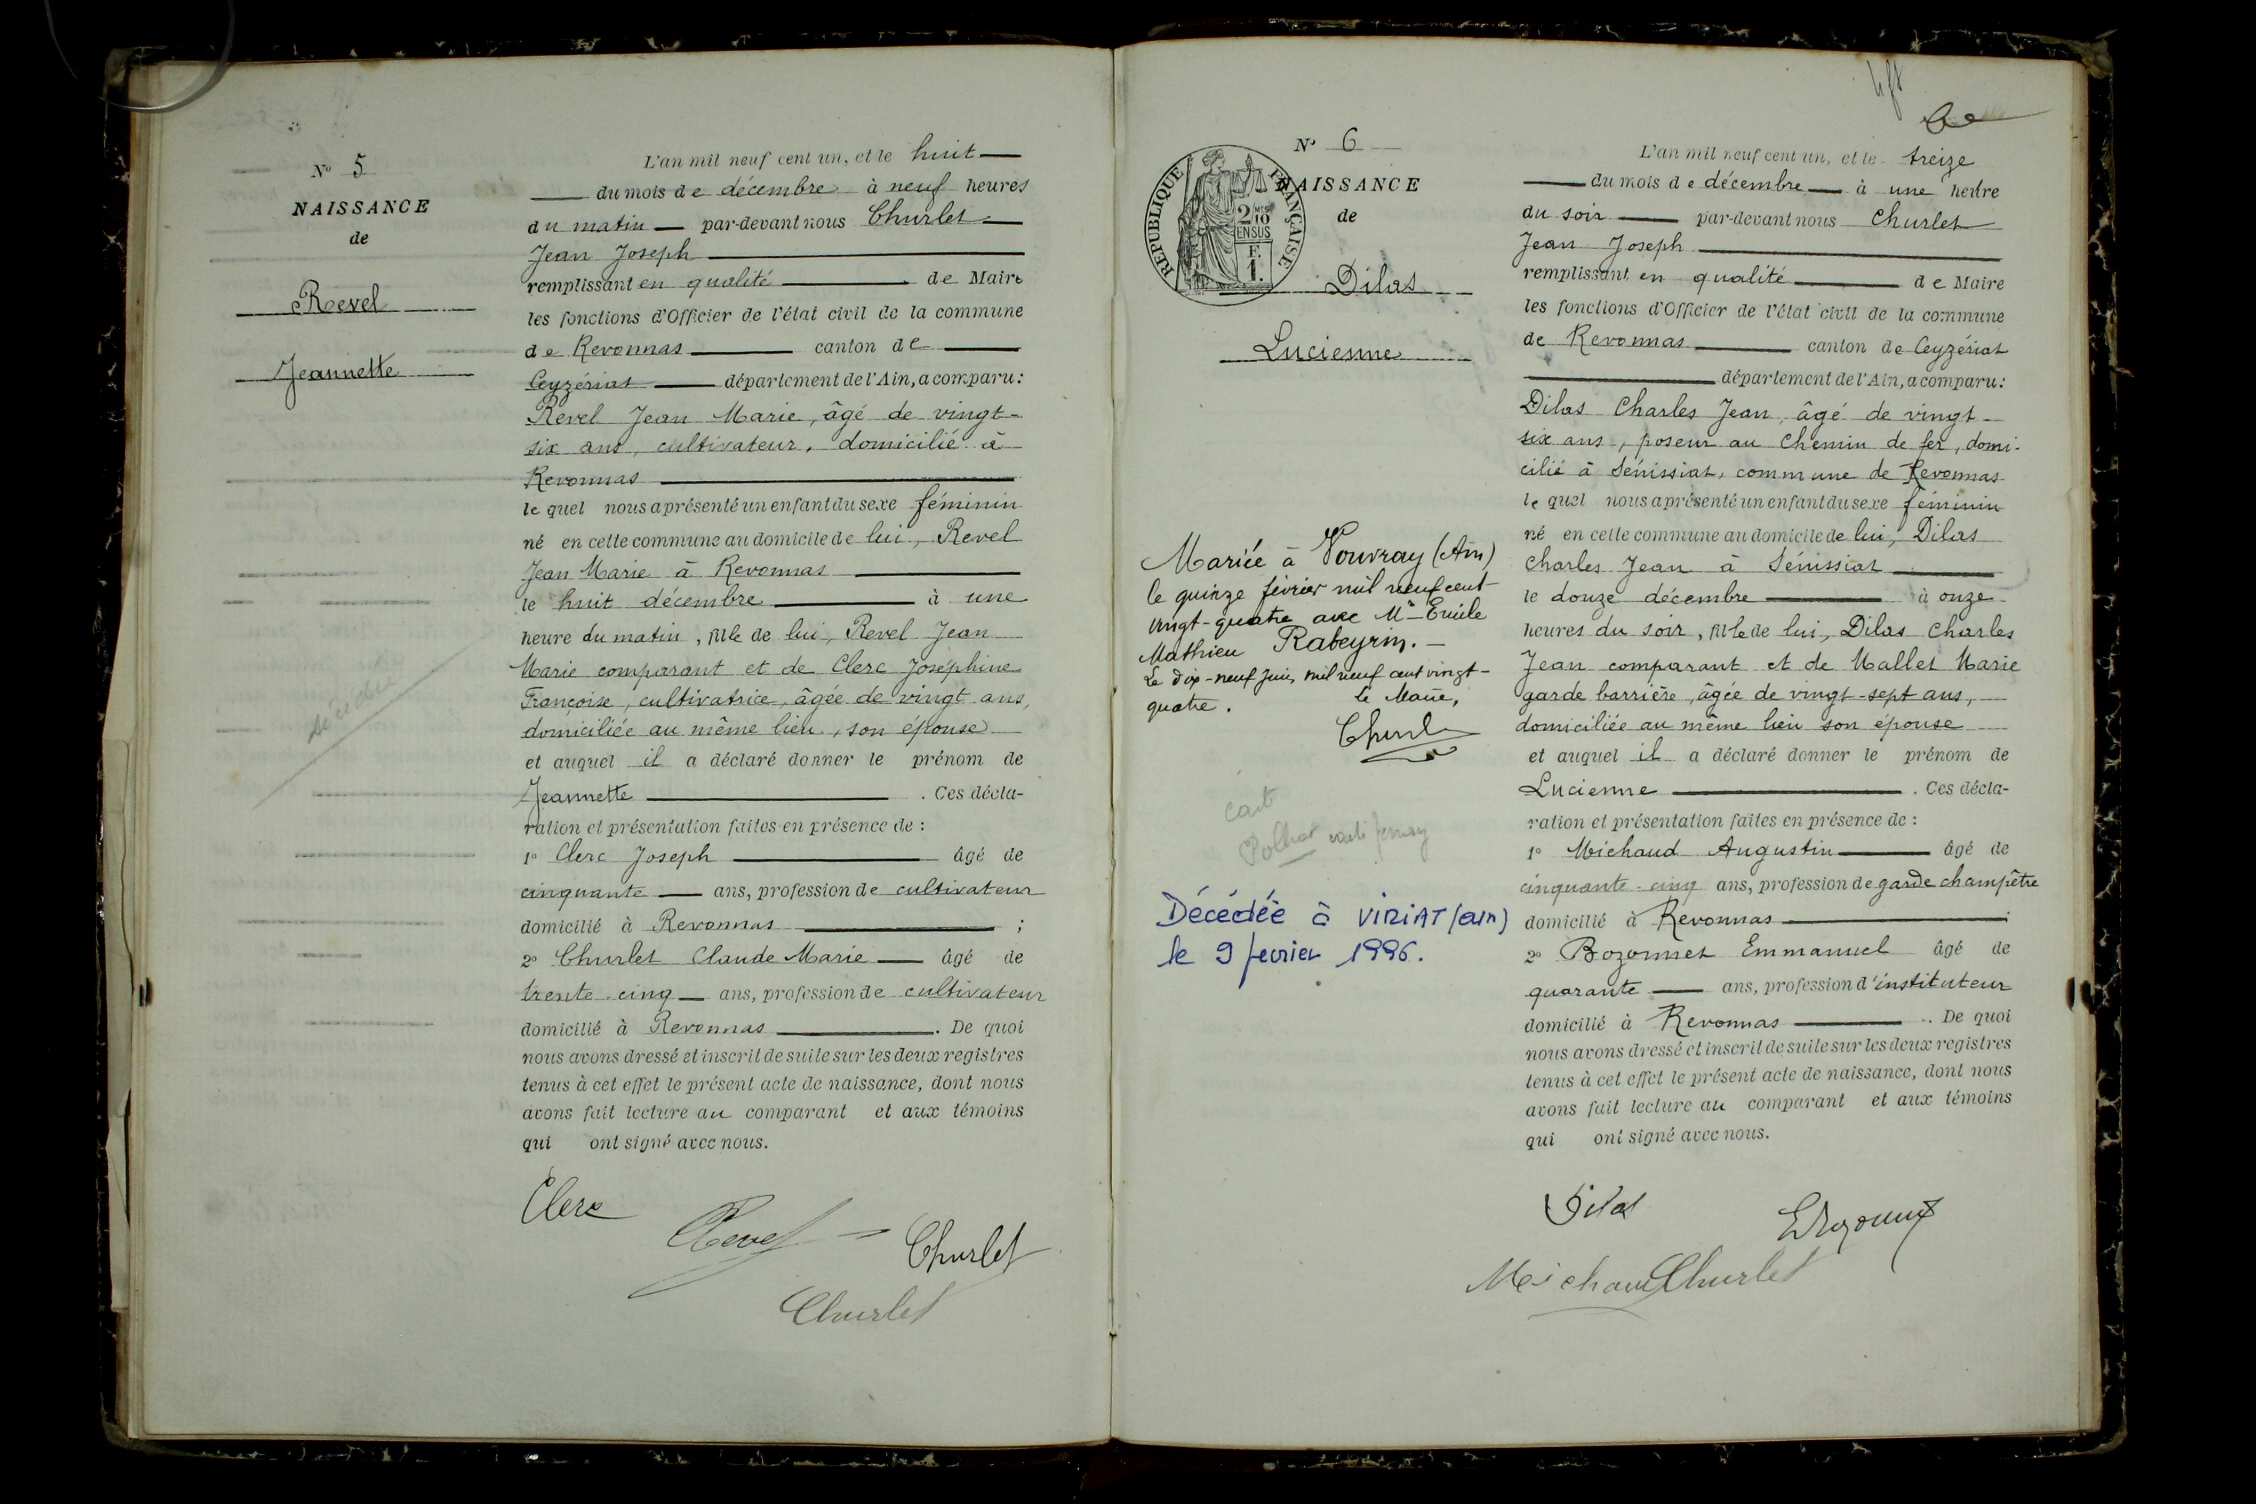 N° 5
NAISSANCE
de
Revel
Jeannette
décédée
L'an mil neuf cent un, et le huit
du mois de décembre à neuf heures
du matin par-devant nous Churlet
Jean Joseph
remplissant en qualité de Maire
les fonctions d'Officier de l'état civil de la commune
de Revonnas canton de
Ceyzériat département de l'Ain, a comparu :
Revel Jean Marie, âgé de vingt-
six ans, cultivateur, domicilié à
Revonnas
le quel nous a présenté un enfant du sexe féminin
né en cette commune au domicile de lui, Revel
Jean Marie à Revonnas
le huit décembre à une
heure du matin, fille de lui, Revel Jean
Marie comparant et de Clerc Joséphine
Françoise, cultivatrice, âgée de vingt ans,
domiciliée au même lieu, son épouse
et auquel il a déclaré donner le prénom de
Jeannette . Ces décla-
ration et présentation faites en présence de :
1° Clerc Joseph âgé de
cinquante ans, profession de cultivateur
domicilié à Revonnas ;
2° Churlet Claude Marie âgé de
trente-cinq ans, profession de cultivateur
domicilié à Revonnas . De quoi
nous avons dressé et inscrit de suite sur les deux registres
tenus à cet effet le présent acte de naissance, dont nous
avons fait lecture au comparant et aux témoins
qui ont signé avec nous.
Clerc
Revel
Churlet
Churlet
N° 6
NAISSANCE
de
RÉPUBLIQUE FRANÇAISE
2 MES 10
EN SUS
F.
1.
Dilas
Lucienne
Mariée à Vouvray (Ain)
le quinze février mil neuf cent
vingt-quatre avec Mr Emile
Mathieu Rabeyrin.
Le dix-neuf Juin mil neuf cent vingt-
quatre. Le Maire,
Churl
Décédée à VIRIAT (ain)
le 9 fevrier 1996.
L'an mil neuf cent un, et le treize
du mois de décembre à une heure
du soir par-devant nous Churlet
Jean Joseph
remplissant en qualité de Maire
les fonctions d'Officier de l'état civil de la commune
de Revonnas canton de Ceyzériat
département de l'Ain, a comparu :
Dilas Charles Jean, âgé de vingt-
six ans, poseur au Chemin de fer, domi-
cilié à Sénissiat, commune de Revonnas
le quel nous a présenté un enfant du sexe féminin
né en cette commune au domicile de lui, Dilas
Charles Jean à Sénissiat
le douze décembre à onze
heures du soir, fille de lui, Dilas Charles
Jean comparant et de Mallet Marie
garde barrière, âgée de vingt-sept ans,
domiciliée au même lieu son épouse
et auquel il a déclaré donner le prénom de
Lucienne . Ces décla-
ration et présentation faites en présence de :
1° Michaud Augustin âgé de
cinquante-cinq ans, profession de garde champêtre
domicilié à Revonnas
2° Bozonnet Emmanuel âgé de
quarante ans, profession d'instituteur
domicilié à Revonnas . De quoi
nous avons dressé et inscrit de suite sur les deux registres
tenus à cet effet le présent acte de naissance, dont nous
avons fait lecture au comparant et aux témoins
qui ont signé avec nous.
Dilas
EBozonnet
Michaud Churlet